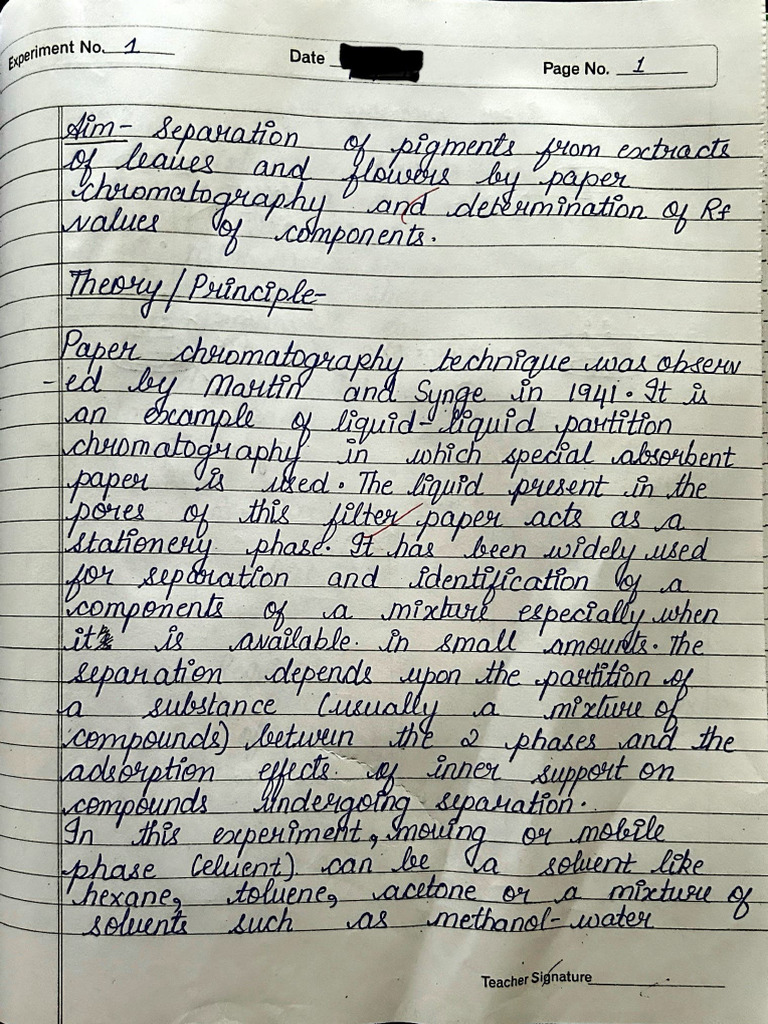 Experiment No. 1
Date
Page No. 1
Aim- Separation of pigments from extracts
of leaves and flowers by paper
chromatography and determination of Rf
values of components.
Theory/Principle-
Paper chromatography technique was observ
-ed by Martin and Synge in 1941. It is
an example of liquid-liquid partition
chromatography in which special absorbent
paper is used. The liquid present in the
pores of this filter paper acts as a
stationery phase. It has been widely used
for separation and identification of a
components of a mixture especially when
it is available in small amounts. The
separation depends upon the partition of
a substance (usually a mixture of
compounds) between the 2 phases and the
adsorption effects of inner support on
compounds undergoing separation.
In this experiment, moving or mobile
phase (eluent) can be a solvent like
hexane, toluene, acetone or a mixture of
solvents such as methanol-water
Teacher Signature